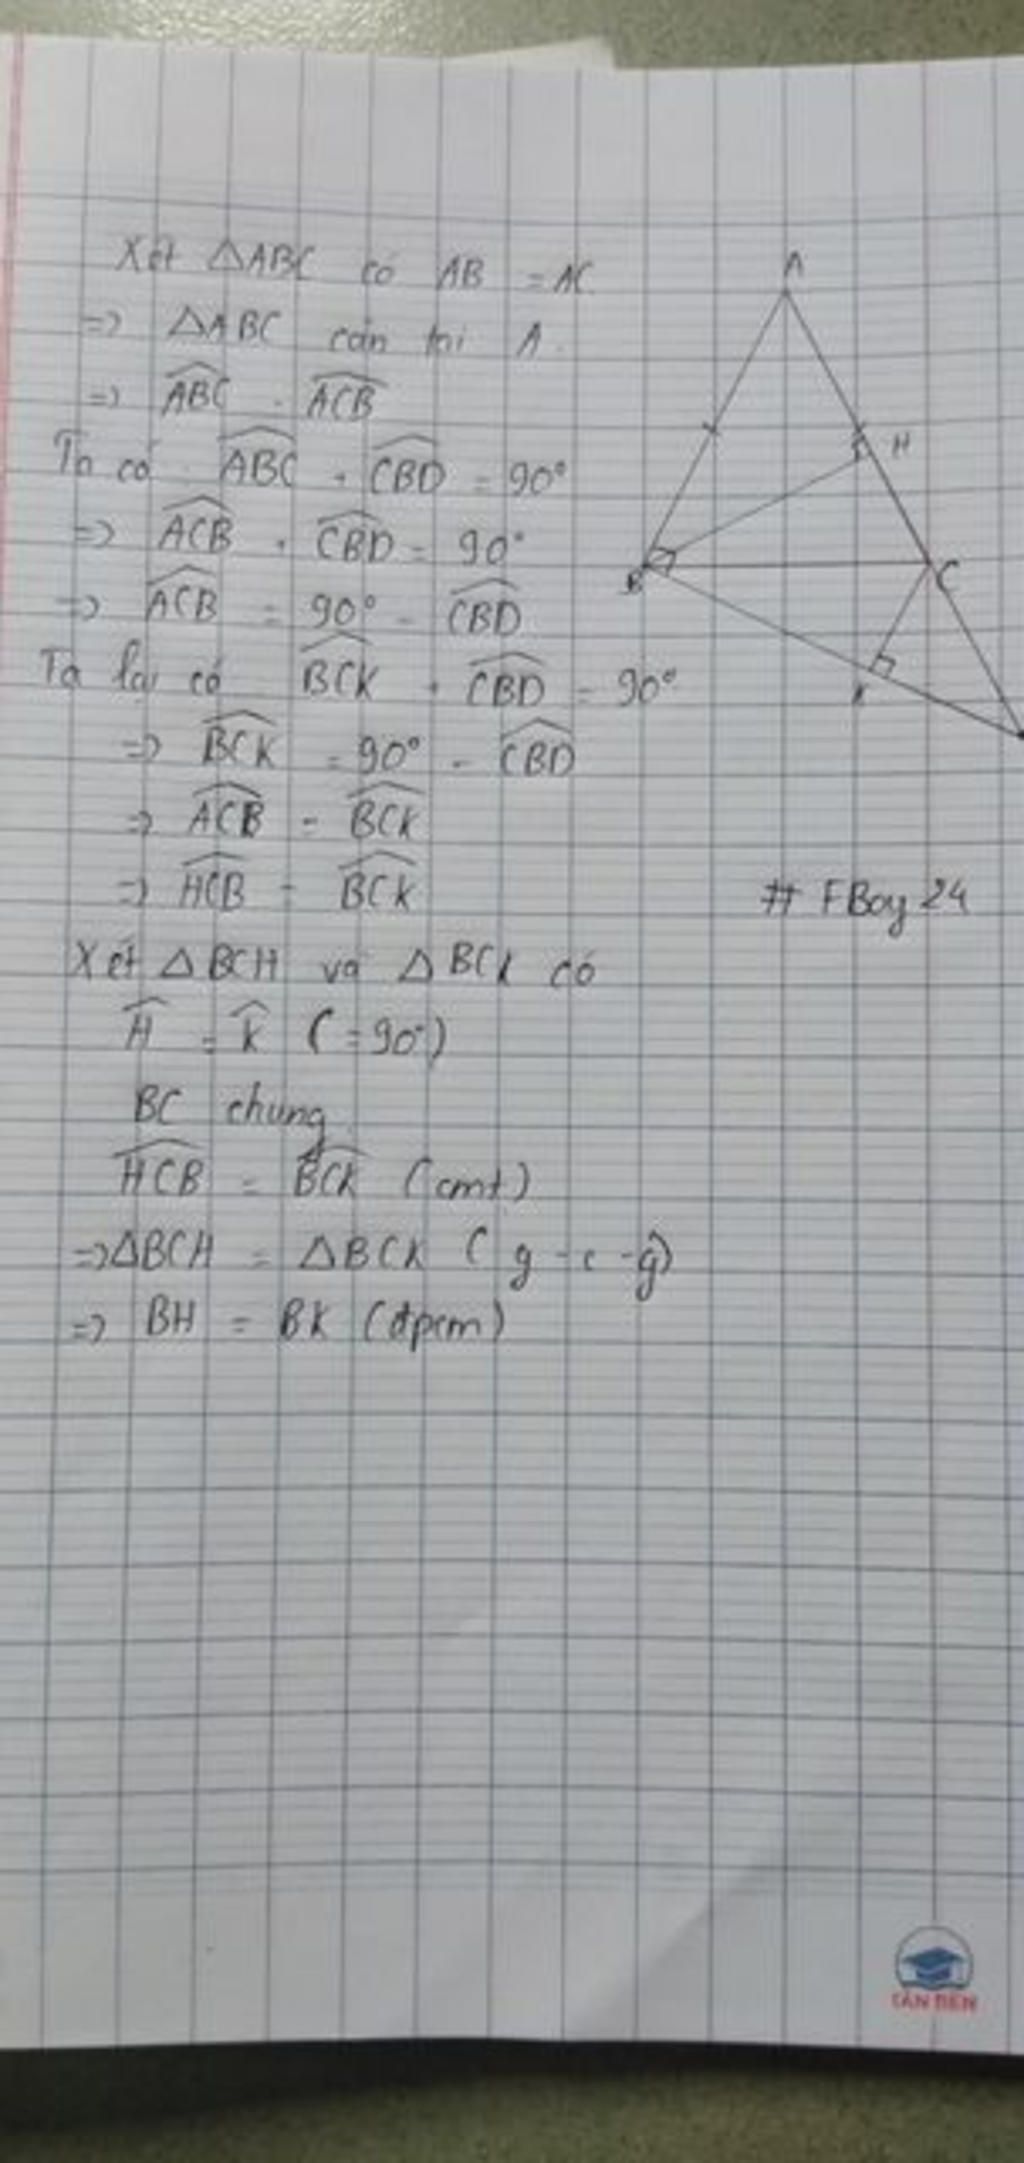 Xét △ABC có AB = AC
=> △ABC cân tại A.
=> \widehat{ABC} = \widehat{ACB}
Ta có \widehat{ABC} + \widehat{CBD} = 90°
=> \widehat{ACB} + \widehat{CBD} = 90°
=> \widehat{ACB} = 90° - \widehat{CBD}
Ta lại có \widehat{BCK} + \widehat{CBD} = 90°
=> \widehat{BCK} = 90° - \widehat{CBD}
=> \widehat{ACB} = \widehat{BCK}
=> \widehat{HCB} = \widehat{BCK}
Xét △BCH và △BCK có
\widehat{H} = \widehat{K} (=90°)
BC chung.
\widehat{HCB} = \widehat{BCK} (cmt)
=> △BCH = △BCK (g-c-g)
=> BH = BK (đpcm)
A
H
B
C
K
# FBoy 24
TÂN BIÊN